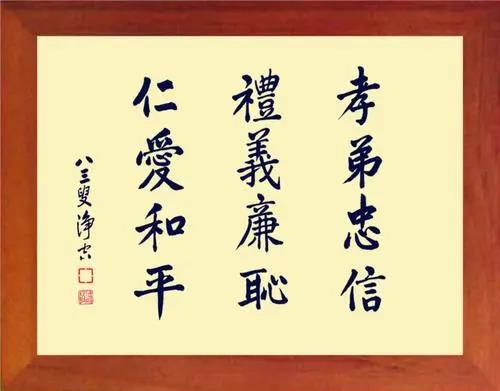 孝弟忠信
禮義廉恥
仁愛和平
八三叟淨空